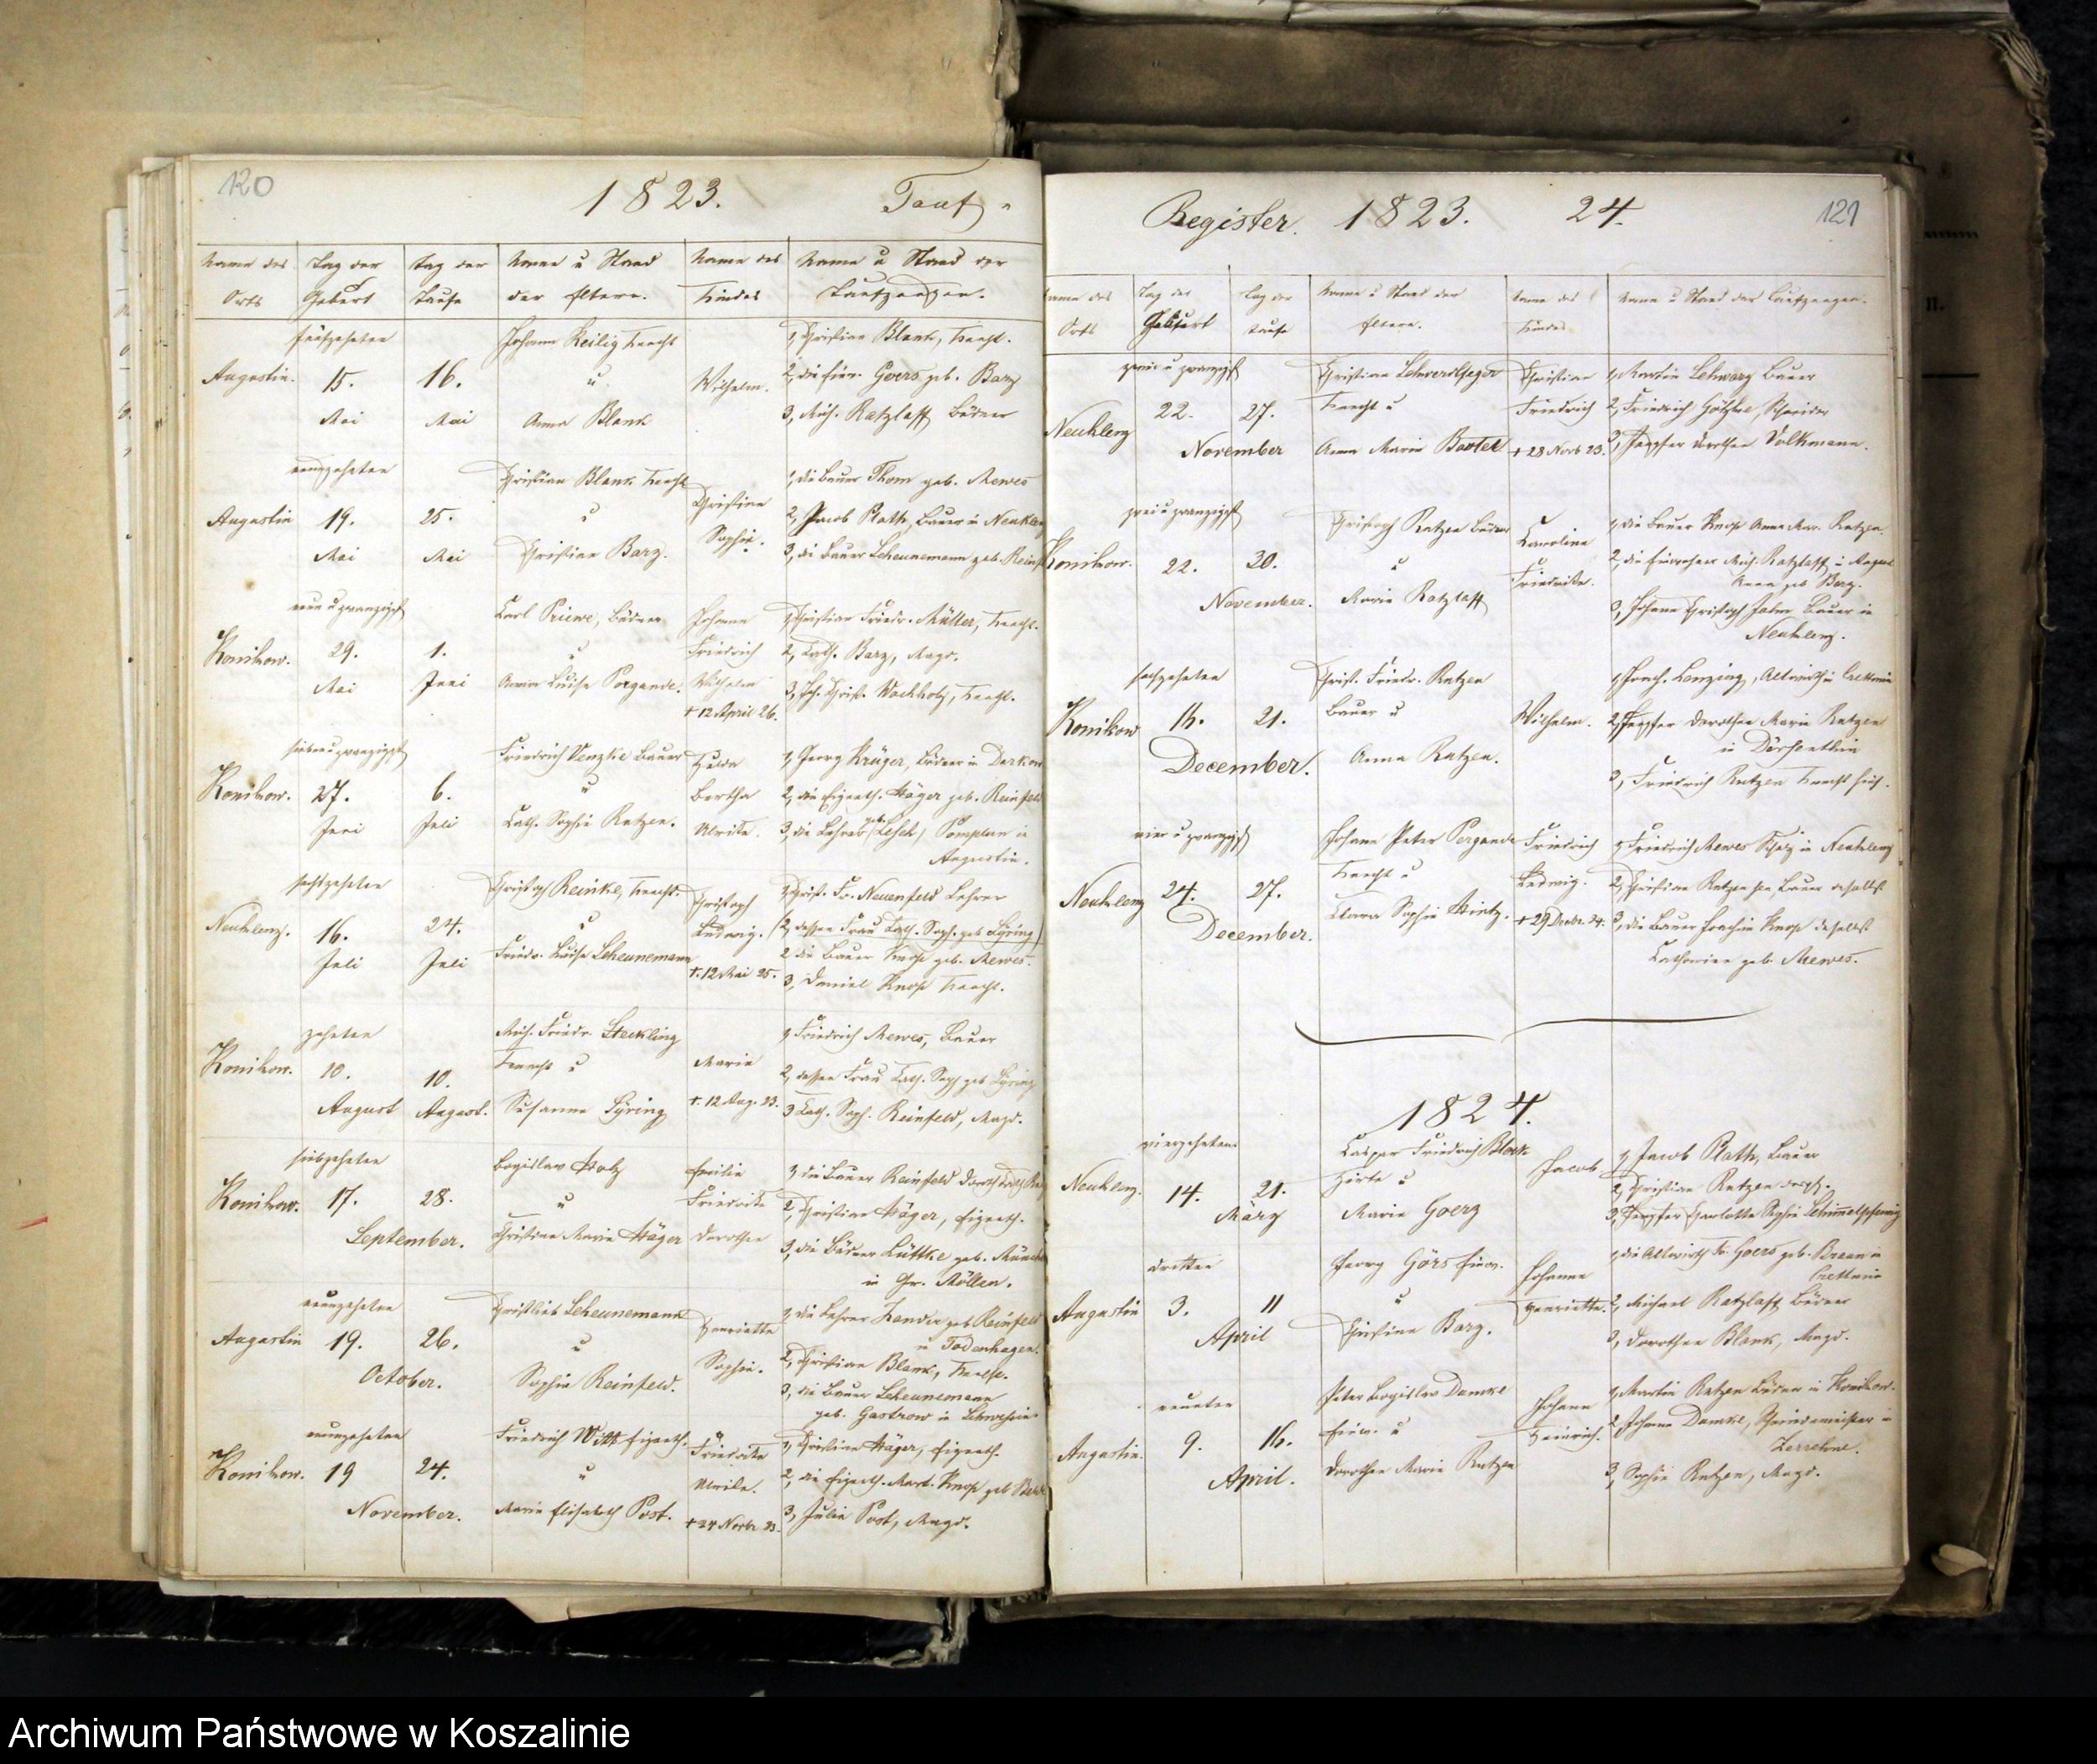 120
1823.
Tauf
Name des Orts
Tag der Geburt
Tag der Taufe
Name u Stand der Eltern.
Name des Kindes
Name u Stand der Taufzeugen.
fünfzehnten
Augustin. 15. Mai
16. Mai
Johann Heilig Knecht
u
Anna Blank
Wilhelm.
1, Christian Blank, Knecht.
2, die Einw. Goers geb. Barz
3, Mich. Ratzlaff Büdner
neunzehnten
Augustin 19. Mai
25. Mai
Christian Blank Knecht
u
Christine Barz.
Christine
Sophie.
1, die Bauer Thom geb. Mewes
2, Jacob Plath, Bauer in Neuklenz
3, die Bauer Scheunemann geb.
neun u zwanzigst
Konikow. 29. Mai
1. Juni
Carl Priewe, Büdner
u
Anna Luise Pergande.
Johann
Friedrich
Wilhelm
+ 12 April 26.
1, Christian Friedr. Müller, Knecht.
2, Cath. Barz, Magd.
3, Joh. Christ. Wachholz, Knecht.
sieben u zwanzigst
Konikow. 27. Juni
6. Juli
Friedrich Venzke Bauer
u
Cath. Sophie Ratzen.
Hulda
Bertha
Ulrike.
1, Georg Krüger, Büdner in
2, die Eigenth. Häger geb. Reinfeld
3, die Lehrer Pomplun in
Augustin.
sechszehnten
Neuklenz. 16. Juli
24. Juli
Christoph Reinke, Knecht.
u
Friedr. Luise Scheunemann
Christoph
Ludwig.
+. 12 Mai 25.
1, Christ. Fr. Neuenfeld Lehrer
(2, dessen Frau Cath. Soph. geb. Syring)
2 die Bauer Knop geb. Mewes.
3, Daniel Knop Knecht.
zehnten
Konikow. 10. August
10. August.
Mich. Friedr. Steckling
Knecht u
Susanna Syring
Marie
+. 12 Aug. 23.
1, Friedrich Mewes, Bauer
2, dessen Frau Cath. Soph geb Syring
3 Cath. Soph. Reinfeld, Magd.
siebzehnten
Konikow. 17. 28.
September.
Bogislav Holz
u
Christine Marie Häger
Emilie
Friederike
Dorothee
1, die Bauer Reinfeld
2, Christian Häger, Eigenth.
3, die Büdner Lüttke geb.
in Gr. Möllen.
neunzehnten
Augustin 19. 26.
October.
Christlieb Scheunemann
u
Sophie Reinfeld.
Henriette
Sophie.
1, die Lehrer geb Reinfeld
in Todenhagen.
2, Christian Blank, Knecht.
3, die Bauer Scheunemann
geb. Gastrow in
neunzehnten
Konikow. 19 24.
November.
Friedrich Witt Eigenth.
u
Marie Elisabeth Post.
Friederike
Ulrike.
+ 24 Novbr 23.
1, Christian Häger, Eigenth.
2, die Eigenth. Mart. Knop geb
3, Julie Post, Magd.
Register. 1823. 24.
121
Name des Orts
Tag der Geburt
Tag der Taufe
Name u Stand der Eltern.
Name des Kindes
Name u Stand der Taufzeugen.
zwei u zwanzigst
Neuklenz 22. 27.
November
Christian
Knecht u
Anna Marie Bartel
Christian
Friedrich
+ 28 Novb 23.
1, Martin Schwarz Bauer
2, Friedrich Götzke, Schneider
3, Jungfer Dorothee Volkmann.
zwei u zwanzigst
Konikow. 22. 30.
November.
Christoph Ratzen Büdner
u
Marie Ratzlaff
Caroline
Friederike.
1, die Bauer Knop Anna Mar. Ratzen.
2, die Einwohner Mich. Ratzlaff in
Anna geb Barz.
3, Johann Christoph Bauer in
Neuklenz.
sechszehnten
Konikow 16. 21.
December.
Christ. Friedr. Ratzen
Bauer u
Anna Ratzen.
Wilhelm.
1 Joach. Lanzing, Altwirth in Crettmin
2, Jungfer Dorothee Marie Ratzen
in
3, Friedrich Ratzen Knecht hies.
vier u zwanzigst
Neuklenz 24. 27.
December.
Johann Peter Pergande
Knecht u
Clara Sophie Hintz.
Friedrich
Ludwig.
+ 29 Decbr. 24.
1, Friedrich Mewes Schulz in Neuklenz
2, Christian Ratzen sen, Bauer daselbst
3, die Bauer Joachim Knop daselbst
Catharine geb. Mewes.
1824.
vierzehnten
Neuklenz. 14. 21.
März
Casper Friedrich Block
Hirte u
Marie Goerz
Jacob
1, Jacob Plath, Bauer
2, Christian Ratzen desgl.
3, Jungfer Charlotte Sophie Schimmelpfennig
dritten
Augustin 3. 11
April
Georg Görs Einw.
u
Christine Barz.
Johanne
Henriette.
1, die Altwirth Fr. Goers geb. Braun in
Crettmin
2, Michael Ratzlaff, Büdner
3, Dorothee Blank, Magd.
neunten
Augustin. 9. 16.
April.
Peter Bogislav Damke
Einw. u
Dorothee Marie Ratzen
Johann
Heinrich.
1, Martin Ratzen Büdner in Konikow.
2, Johann Damke, Schneidemeister in
Zerrehne.
3, Sophie Ratzen, Magd.
Archiwum Państwowe w Koszalinie